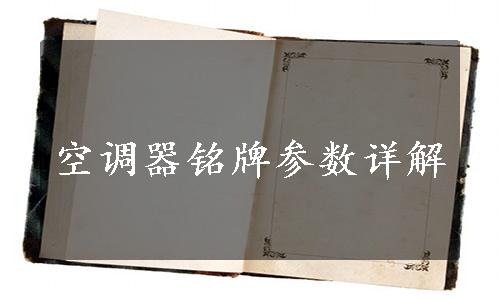 空调器铭牌参数详解